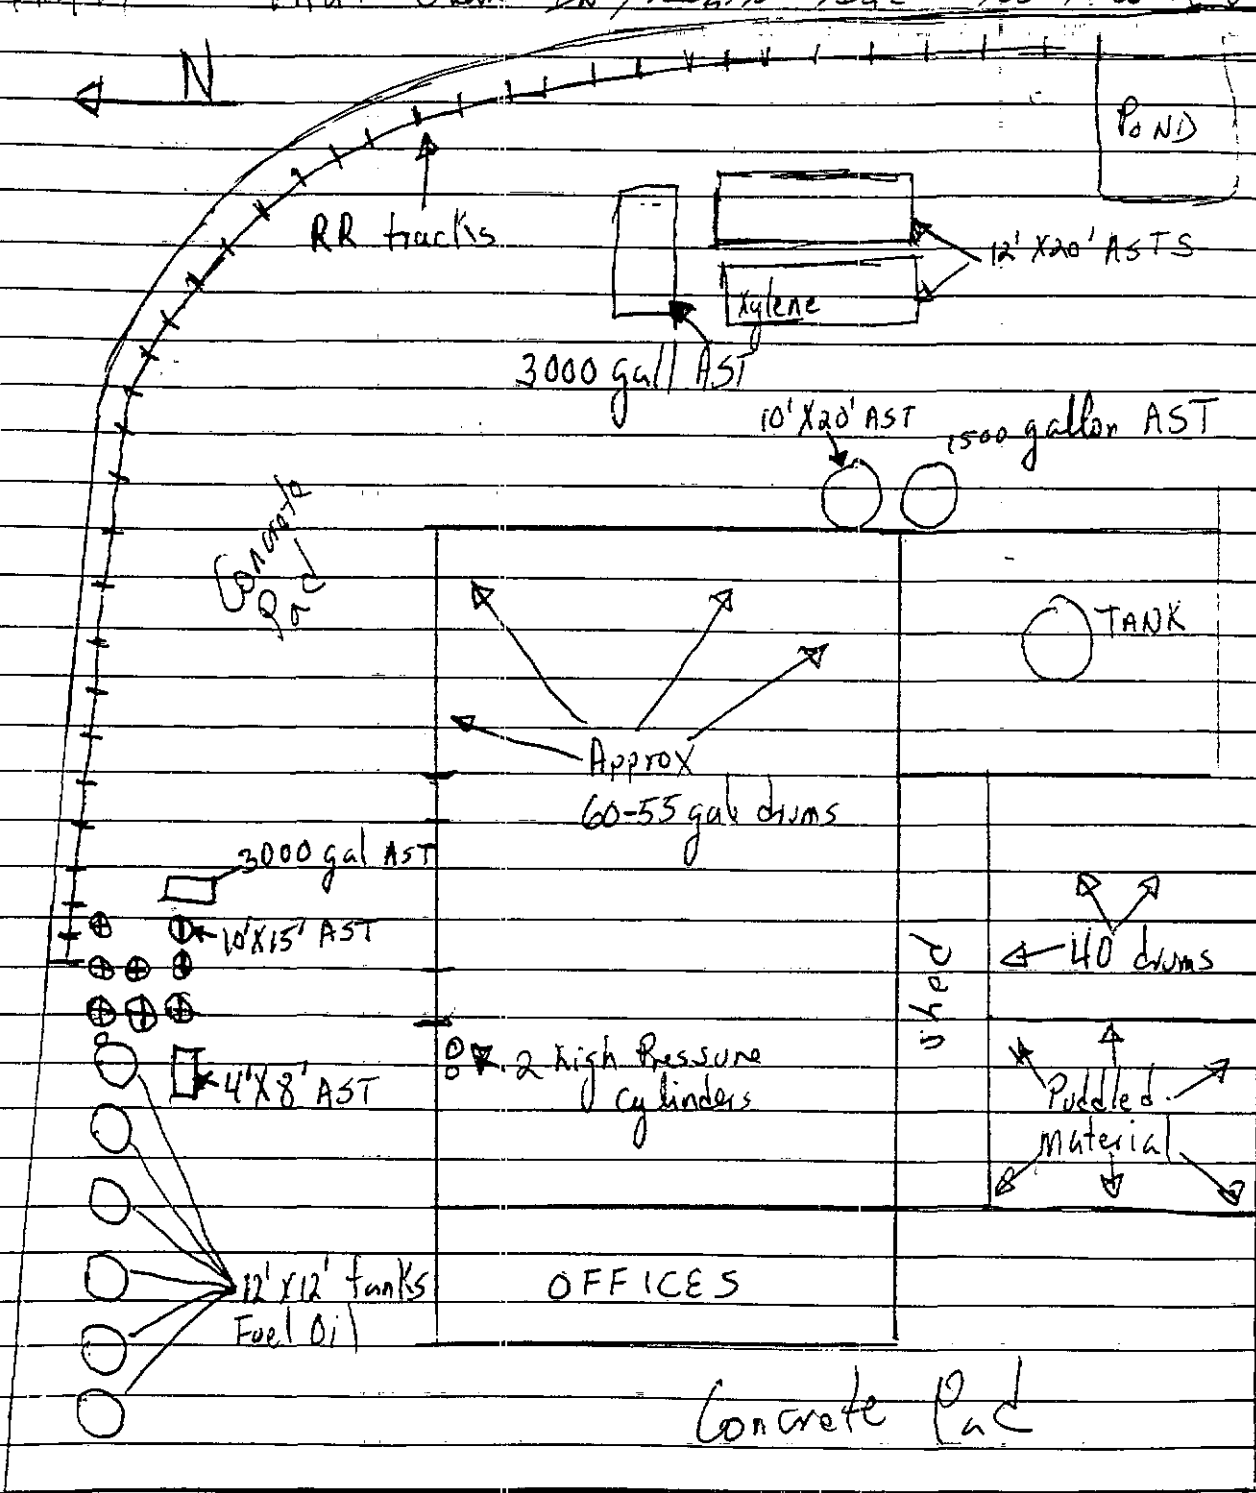 N
POND
RR tracks
12' X20' ASTS
Xylene
3000 gall AST
10' X20' AST
1500 gallon AST
Concrete
Pad
TANK
Approx
60-55 gal drums
3000 gal AST
10'X15' AST
40 drums
shed
2 high Pressure
cylinders
4'X8' AST
Puddled
Material
12' X12' tanks
Fuel Oil
OFFICES
Concrete Pad